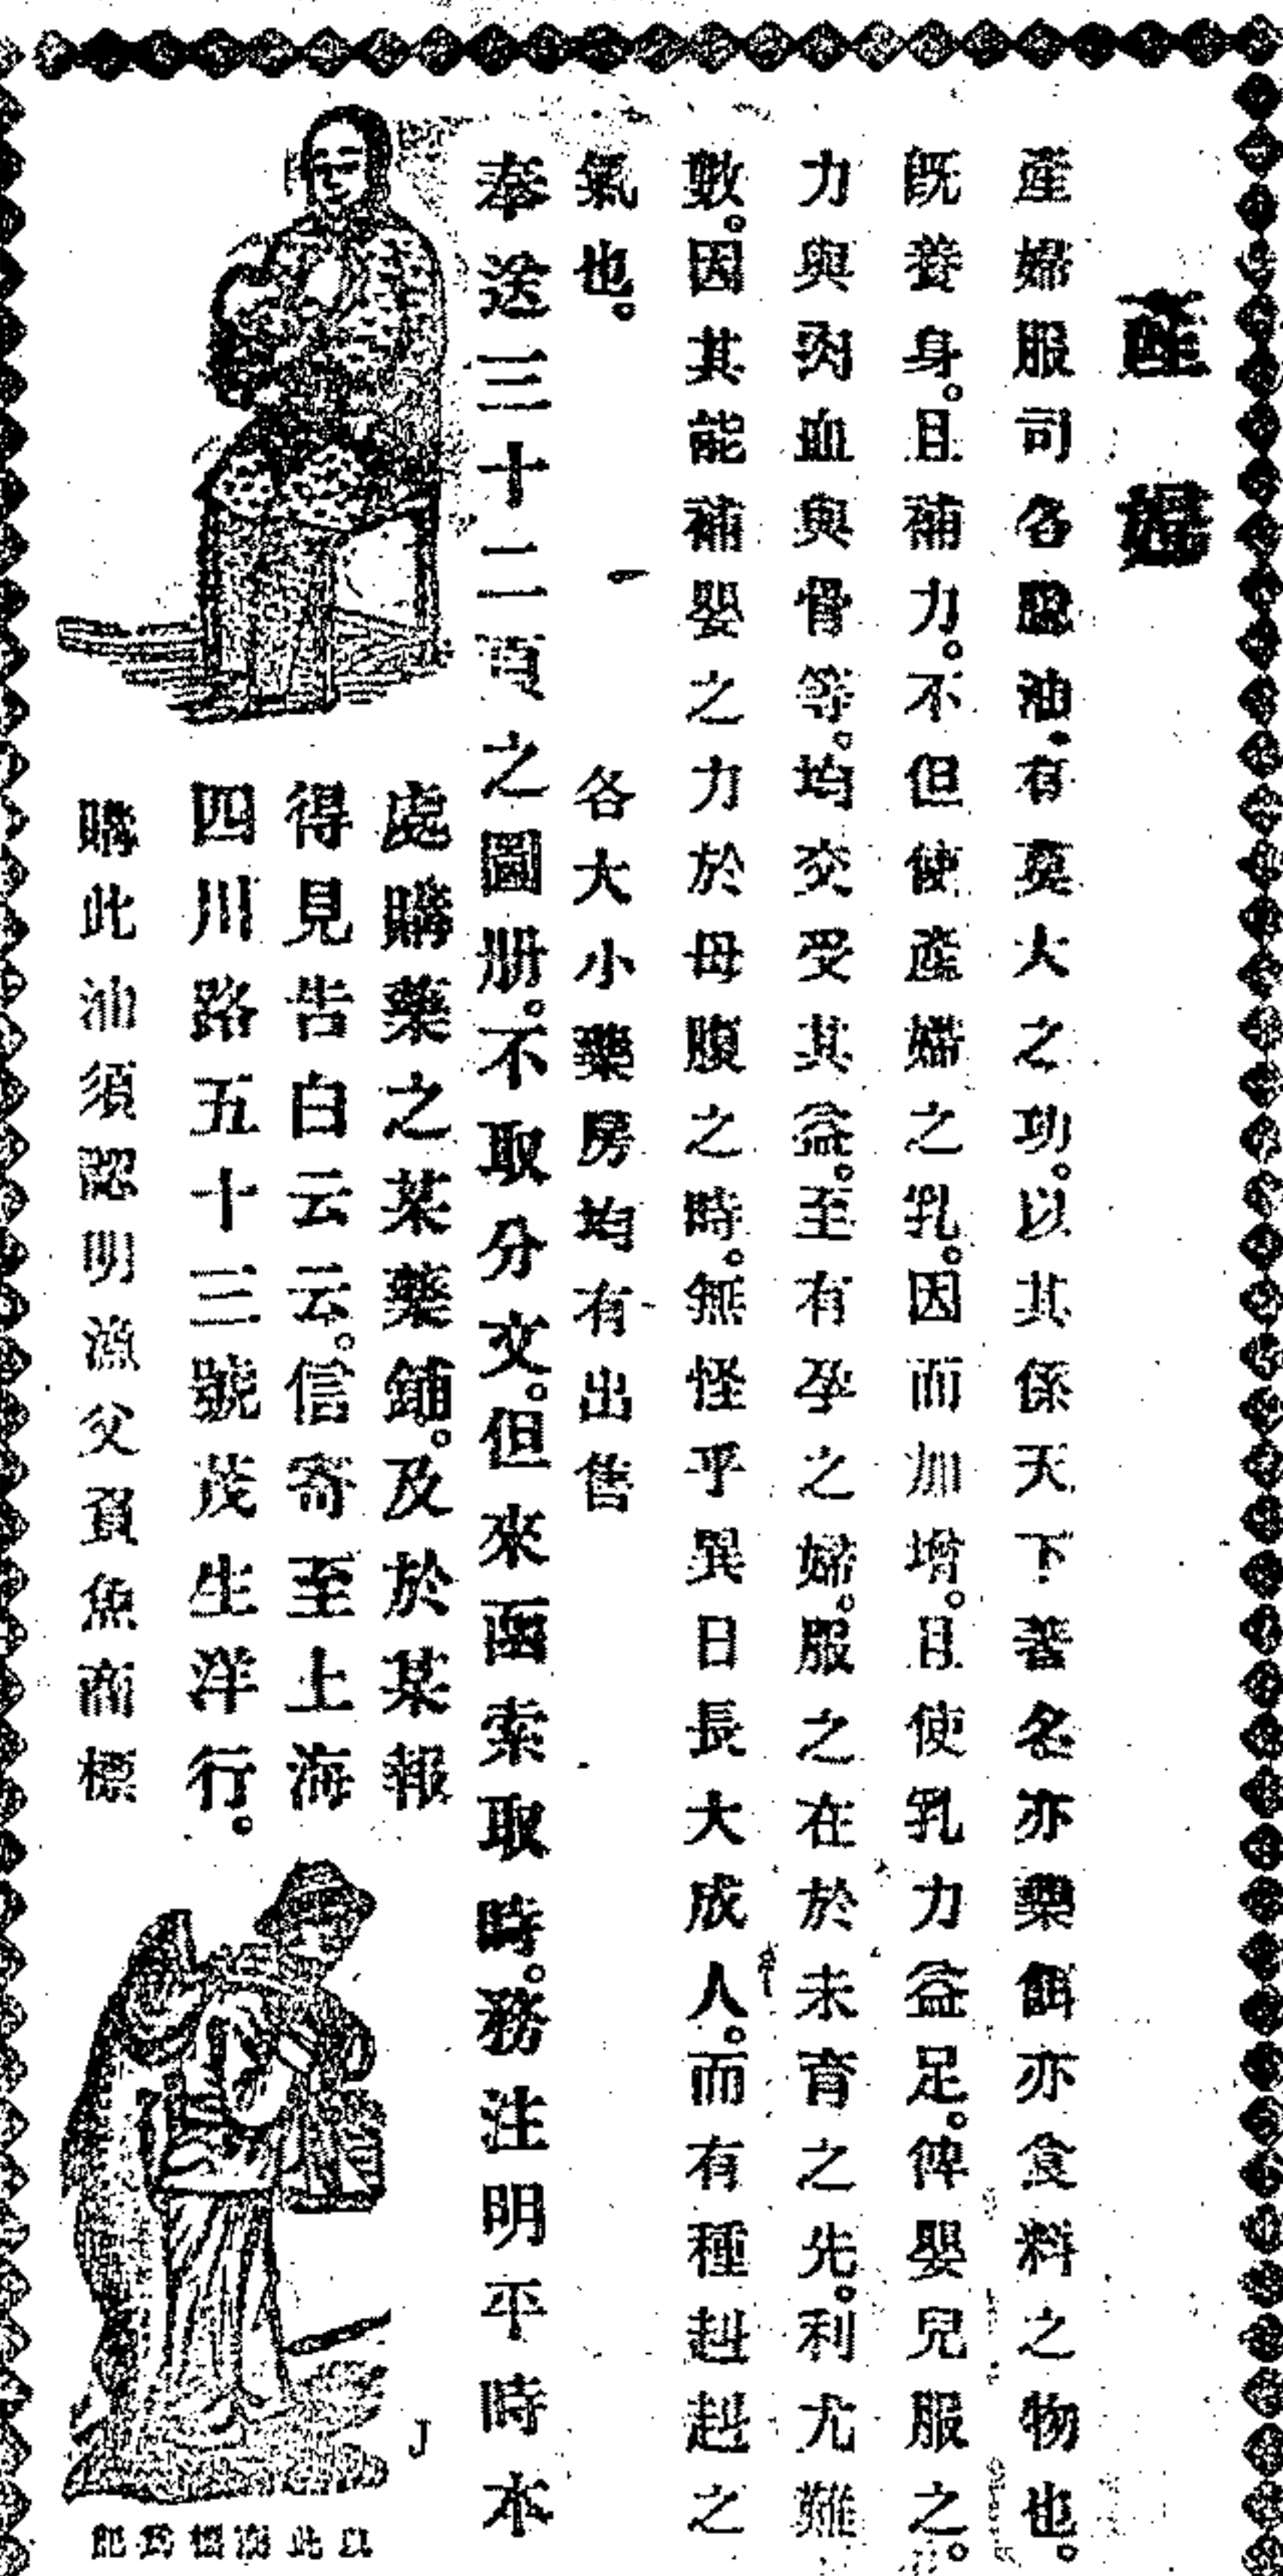 產婦
產婦服司各脫油有莫大之功。以其係天下著名亦藥餌亦食料之物也。
既養身。且補力。不但使產婦之乳。因而加增。且使乳力益足。俾嬰兒服之。
力與肉血與骨等。均交受其益。至有孕之婦。服之在於未育之先。利尤難
數。因其能補嬰之力於母腹之時。無怪乎異日長大成人。而有種赳赳之
氣也。
各大小藥房均有出售
奉送三十二頁之圖册。不取分文。但來函索取時。務注明平時本
處購藥之某藥鋪。及於某報
得見告白云云。信寄至上海
四川路五十三號茂生洋行。
購此油須認明漁父負魚商標
J
以此商標爲記